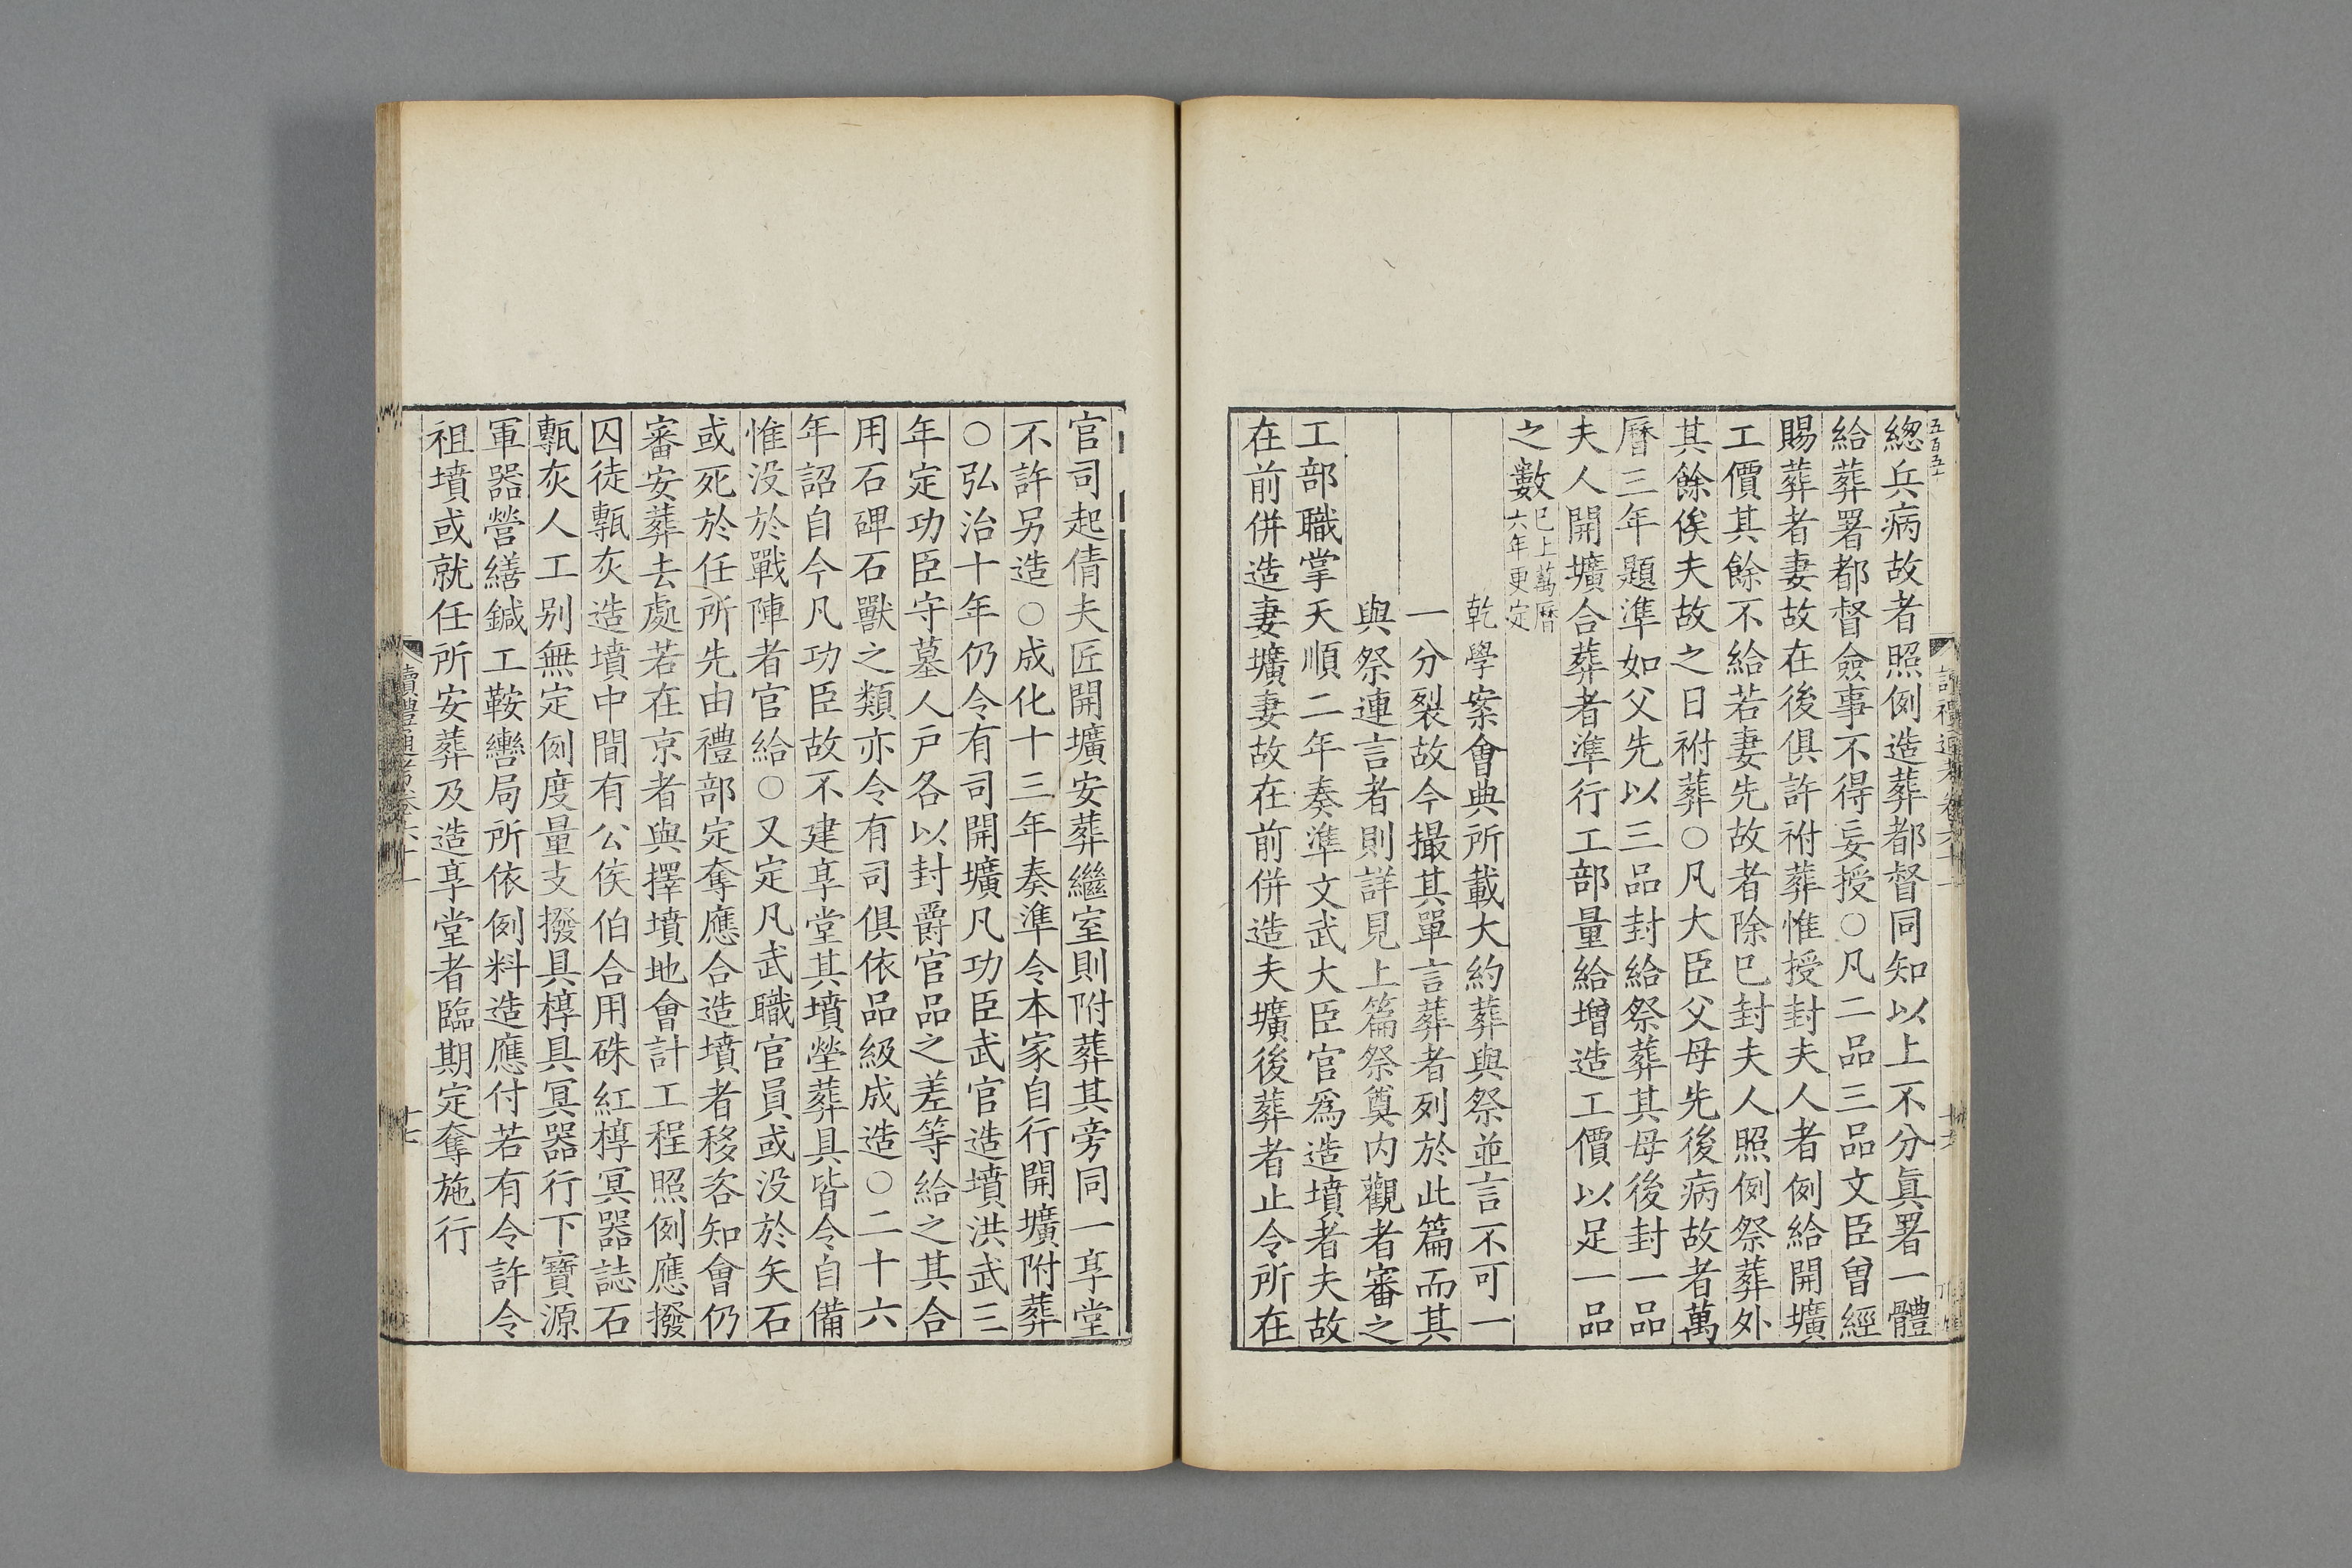 總兵病故者照例造葬都督同知以上不分眞署一體
給葬署都督僉事不得妄授○凡二品三品文臣曾經
賜葬者妻故在後俱許祔葬惟授封夫人者例給開壙
工價其餘不給若妻先故者除已封夫人照例祭葬外
其餘俟夫故之日祔葬○凡大臣父母先後病故者萬
曆三年題準如父先以三品封給祭葬其母後封一品
夫人開壙合葬者準行工部量給增造工價以足一品
之數已上萬曆
六年更定
乾學案會典所載大約葬與祭並言不可一
一分裂故今撮其單言葬者列於此篇而其
與祭連言者則詳見上篇祭奠內觀者審之
工部職掌天順二年奏準文武大臣官爲造墳者夫故
在前併造妻壙妻故在前併造夫壙後葬者止令所在
官司起倩夫匠開壙安葬繼室則附葬其旁同一享堂
不許另造○成化十三年奏準令本家自行開壙附葬
○弘治十年仍令有司開壙凡功臣武官造墳洪武三
年定功臣守墓人戶各以封爵官品之差等給之其合
用石碑石獸之類亦令有司俱依品級成造○二十六
年詔自今凡功臣故不建享堂其墳塋葬具皆令自備
惟没於戰陣者官給○又定凡武職官員或没於矢石
或死於任所先由禮部定奪應合造墳者移咨知會仍
審安葬去處若在京者與擇墳地會計工程照例應撥
囚徒甎灰造墳中間有公侯伯合用硃紅槨冥器誌石
甎灰人工別無定例度量支撥具槨具冥器行下寶源
軍器營繕鍼工鞍轡局所依例料造應付若有令許令
祖墳或就任所安葬及造享堂者臨期定奪施行
讀禮通考卷六十一
十七